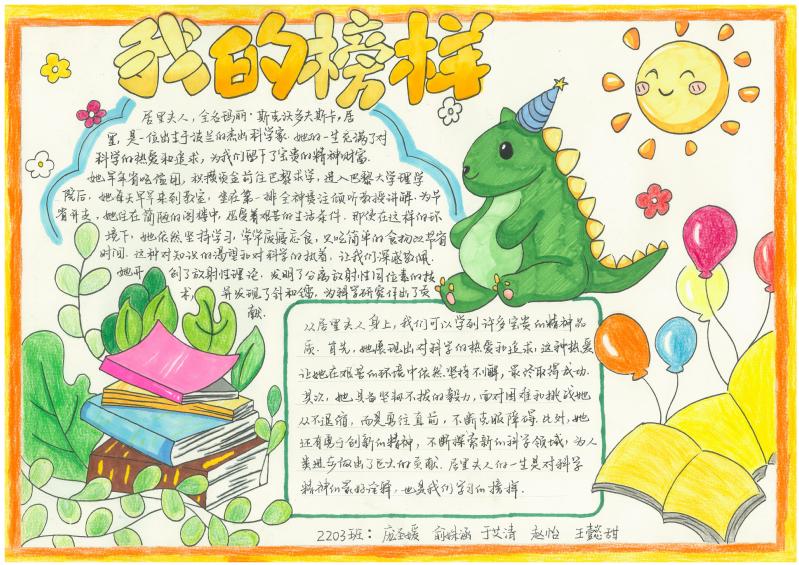 我的榜样
居里夫人，全名玛丽·斯克沃多夫斯卡·居
里，是一位出生于波兰的杰出科学家。她的一生充满了对
科学的热爱和追求，为我们留下了宝贵的精神财富。
她早年省吃俭用，积攒资金前往巴黎求学，进入巴黎大学理学
院后，她每天早早来到教室，坐在第一排全神贯注倾听教授讲解。为节
省开支，她住在简陋的阁楼中，忍受着艰苦的生活条件。即使在这样的环
境下，她依然坚持学习，常常废寝忘食，只吃简单的食物以节省
时间。这种对知识的渴望和对科学的执着，让我们深感敬佩。
她开创了放射性理论，发明了分离放射性同位素的技
术，并发现了钋和镭，为科学研究作出了贡
献。
从居里夫人身上，我们可以学到许多宝贵的精神品
质。首先，她展现出对科学的热爱和追求，这种热爱
让她在艰苦的环境中依然坚持不懈，最终取得成功。
其次，她具备坚韧不拔的毅力，面对困难和挑战她
从不退缩，而是勇往直前，不断克服障碍。此外，她
还有勇于创新的精神，不断探索新的科学领域，为人
类进步做出了巨大的贡献。居里夫人的一生是对科学
精神的最好诠释，也是我们学习的榜样。
2203班： 俞姝涵 于艾清 赵怡 王懿甜